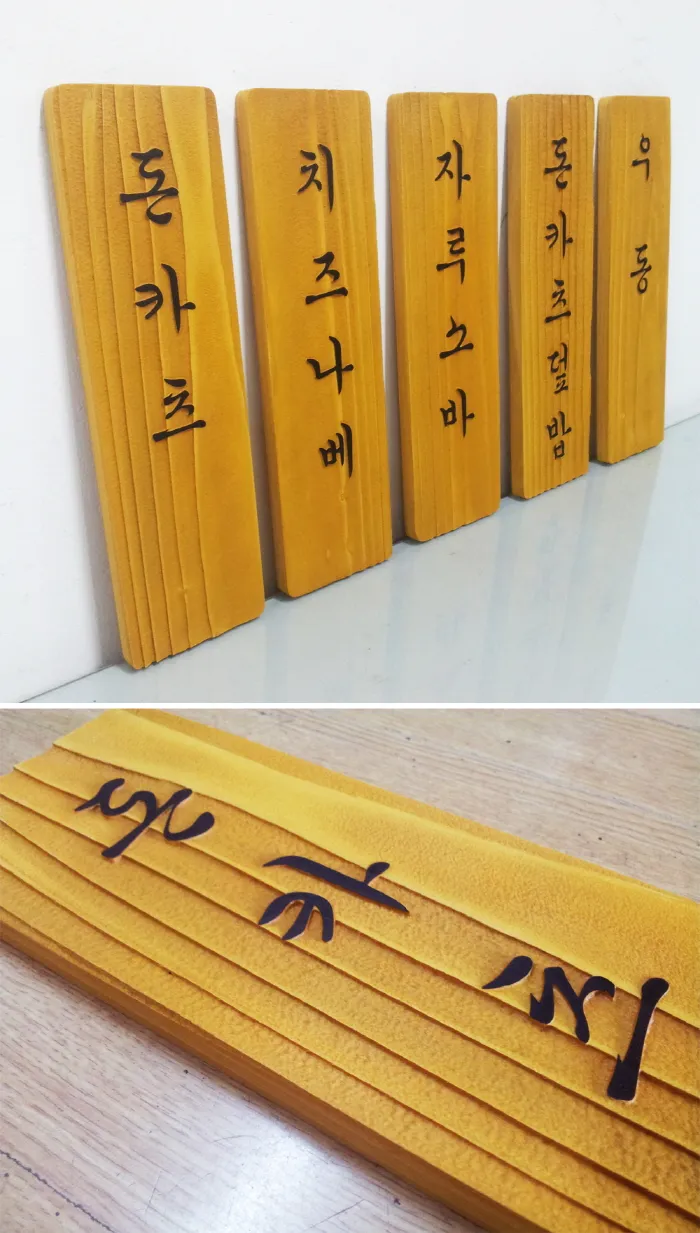 돈카츠
치즈나베
자루소바
돈카츠덮밥
우동
돈카츠